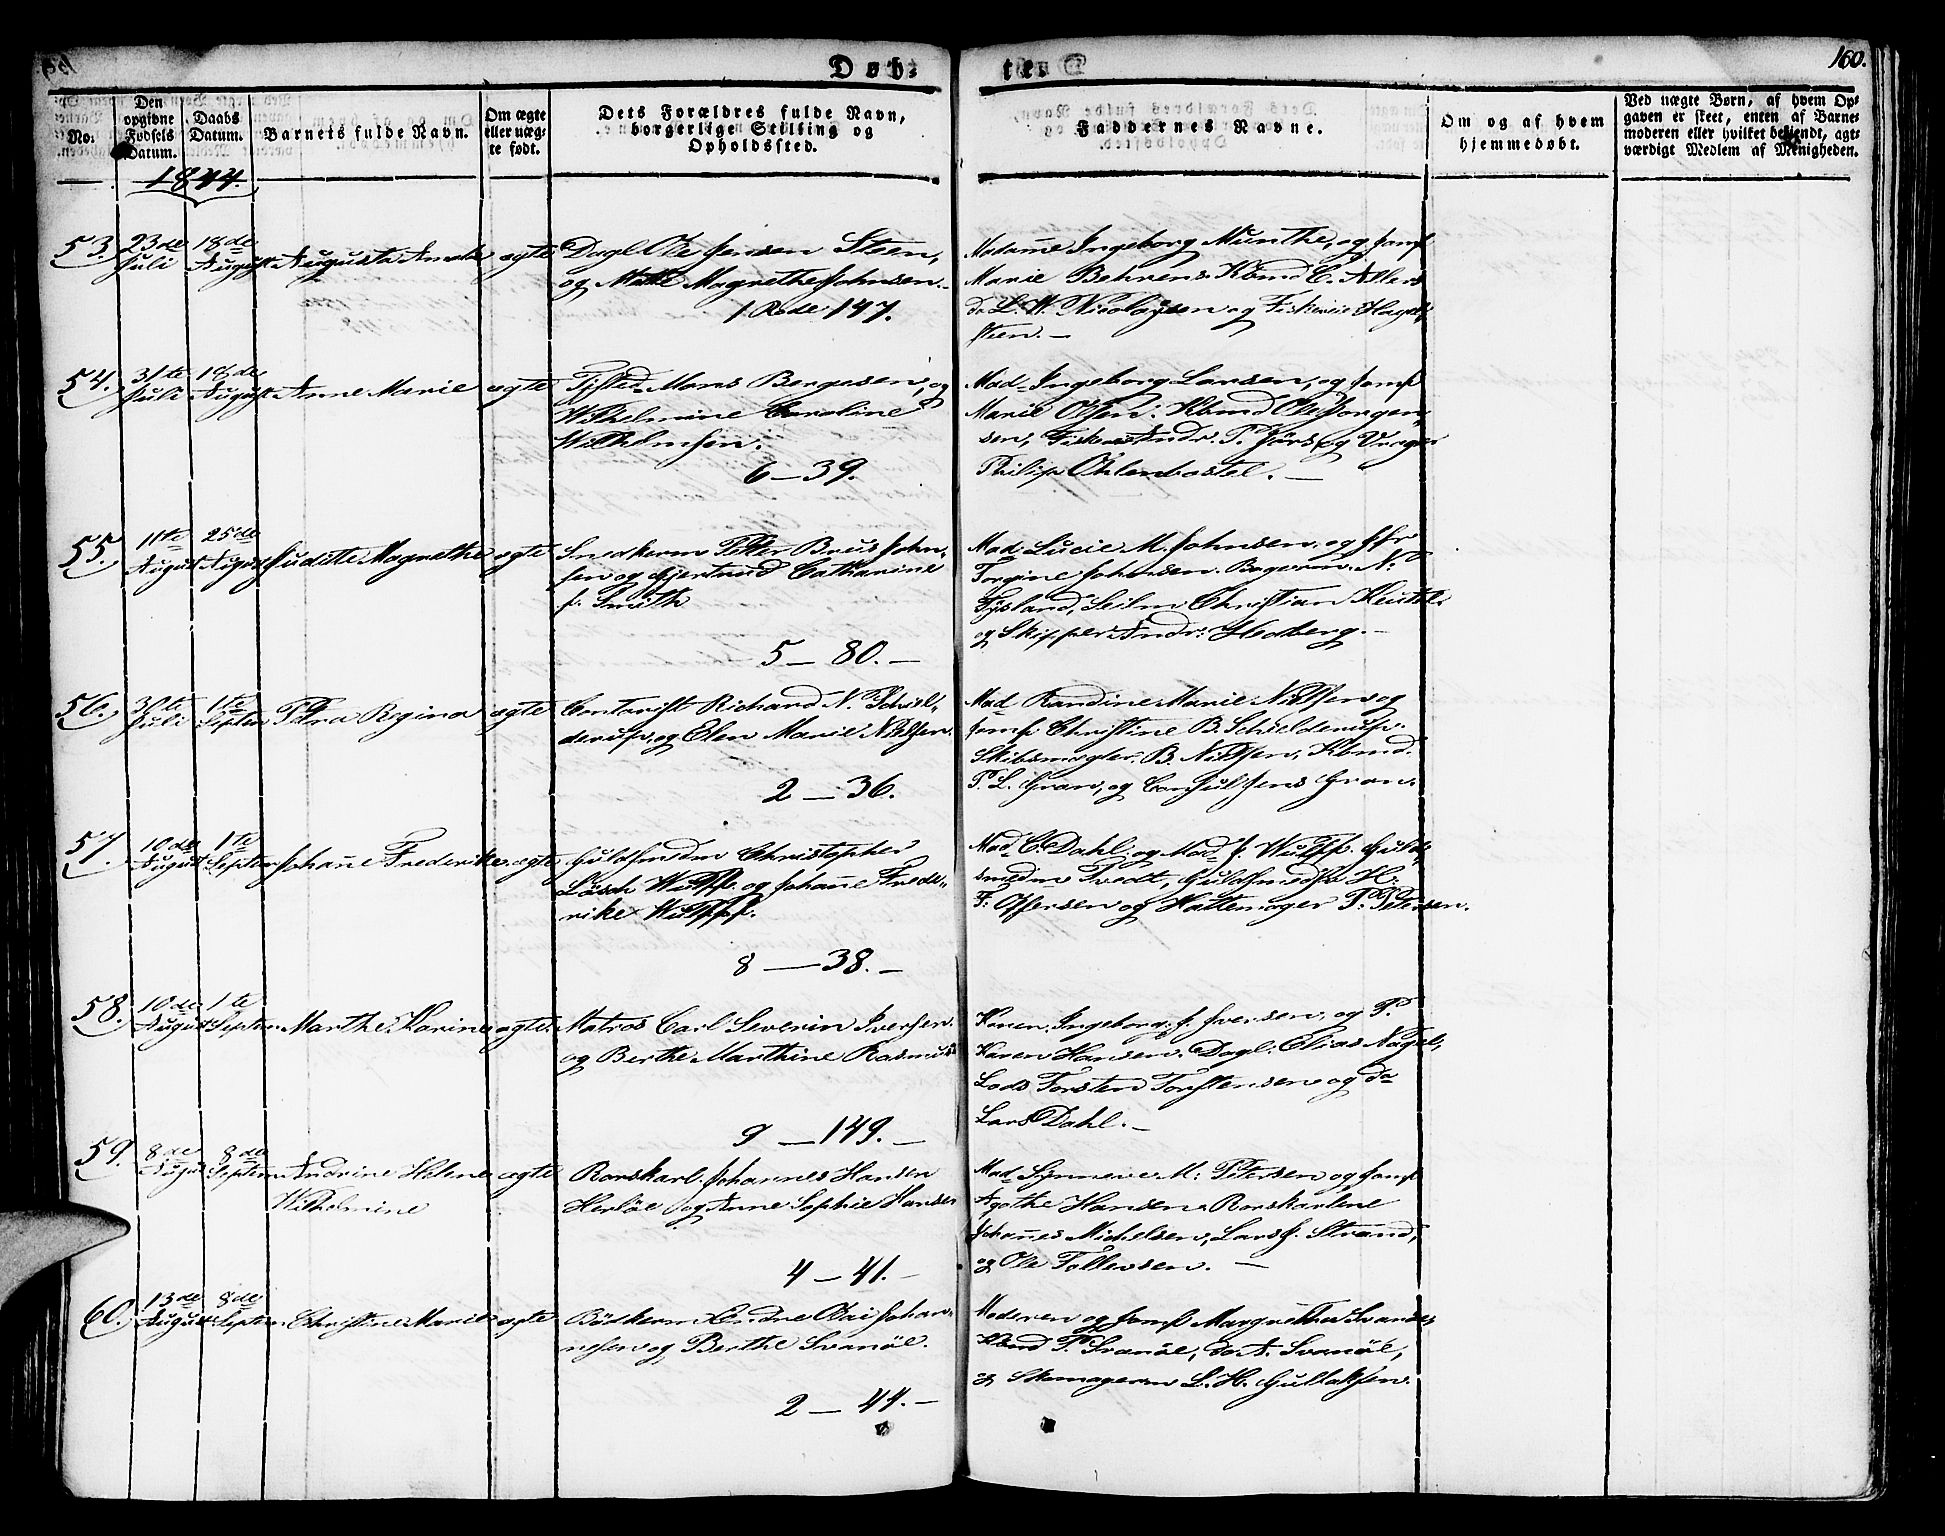 Døb=
ten
160.
No.
Den opgivne Fødsels Datum.
Daabs Datum.
Barnets fulde Navn.
Om ægte eller uæg= te født.
Dets Forældres fulde Navn, borgerlige Stilling og Opholdssted.
Faddernes Navne.
Om og af hvem hjemmedøbt.
Ved uægte Børn, af hvem Op= gaven er skeet, enten af Barne= moderen eller hvilket bekjendt, agt= værdigt Medlem af Menigheden.
1844.
53. 23de Juli 18de August Augusta Amalia ægte
Dagl. Ole Jensen Steen,
og Mette Magrethe Johnsen.
1 Rode 147.
Madame Ingeborg Munthe, og Jomf
Marie Behrens. Kbmd C. Allers
do L. W. Nicolaysen og Hagel=
steen.
54. 31te Juli 18de August Anne Marie ægte
Mons Bergesen, og
Wilhelmine Caroline
Wilhelmsen.
6 — 39.
Mad. Ingeborg Larsen, og Jomf
Marie Olsen: Kbmd Ole Jorgen=
sen, Andr. P. og Vrager
Philip Ohlenbostel.
55. 11te August 25de August Juditte Magrethe ægte
Snedkerm Petter Brus John=
sen og Gjertrud Catharine
f. Smith
5 — 80.
Mad. Lucie M. Johnsen, og Jfr
Torgine Johnsen. Bagerm. N.
Tysland, Seilm Christian Keutel
og Skipper Andr: Hedberg.
56. 30te Juli 1te Septem Petra Regina ægte
Contorist Richard N. Schiel=
derup, og Elen Marie Nielsen.
2 — 36.
Mad. Randine Marie Nielsen og
Jomf Christine B. Schielderup.
Skibsmægler B. Nielsen, Kbmd.
P. L. Gran, og Consul Jens Gran.
57. 10de August 1te Septem Johanne Frederikke ægte
Guldsmedm Christopher
Lösch Wulff og Johanne Frede=
rike Wulff.
8 — 38.
Mad. C. Dahl og Mad. J. Wulff. Guld=
smedm Tvedt, Guldsmeds. H.
F. Ofsersen og Hattemager P. Petersen.
58. 10de August 1te Septem Marthe Karine ægte
Matros Carl Severin Iversen
og Berthe Marthine Rasmus
9 — 149.
Konen Ingeborg J. Iversen, og P.
Karen Hansen. Dagl. Elias Nagel,
Lods Torsten Torstensen og do
Lars Dahl.
59. 8de August 8de Septem Andrine Helene
Wilhelmine ægte
Rorskarl Johannes Hansen
Herlöe og Anne Sophie Hansen
4 — 41.
Mad. Synneve M. Petersen og Jomf
Agathe Hansen. Rorskarlene
Johannes Michelsen, Lars J. Strand,
og Ole Tollevsen.
60. 13de August 8de Septem Christine Marie ægte
Bödkerm Endre Olai Johan=
nesen og Berthe Svanöe.
2 — 44.
Moderen og Jomf Margrethe Svanöe
Kbmd P. Svanöe, do A. Svanöe,
og Skomagerm L. H. Gullaksen.